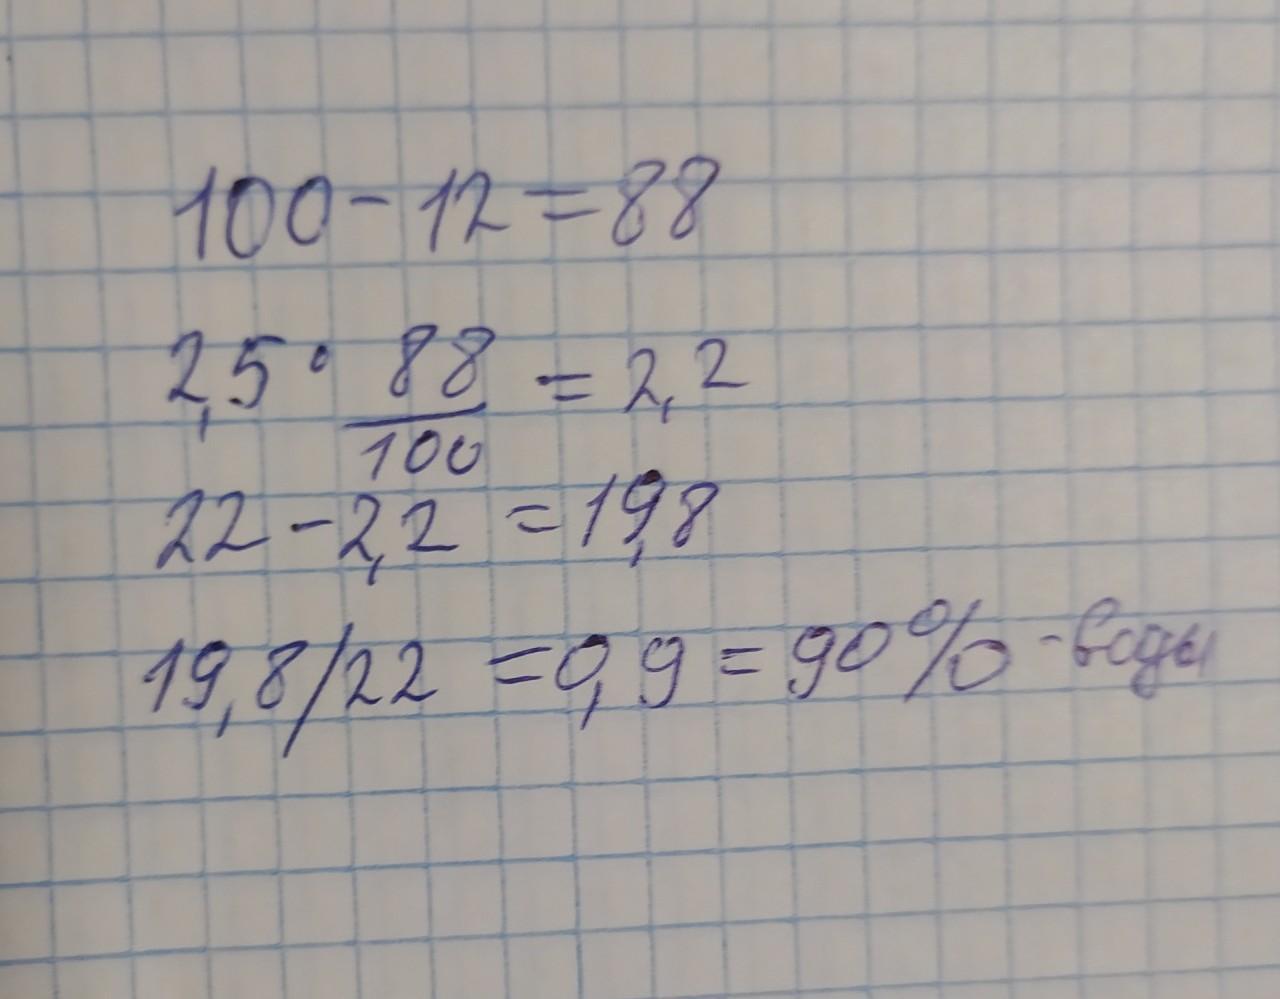 100 - 12 = 88
2,5 · 88/100 = 2,2
22 - 2,2 = 19,8
19,8/22 = 0,9 = 90% - воды